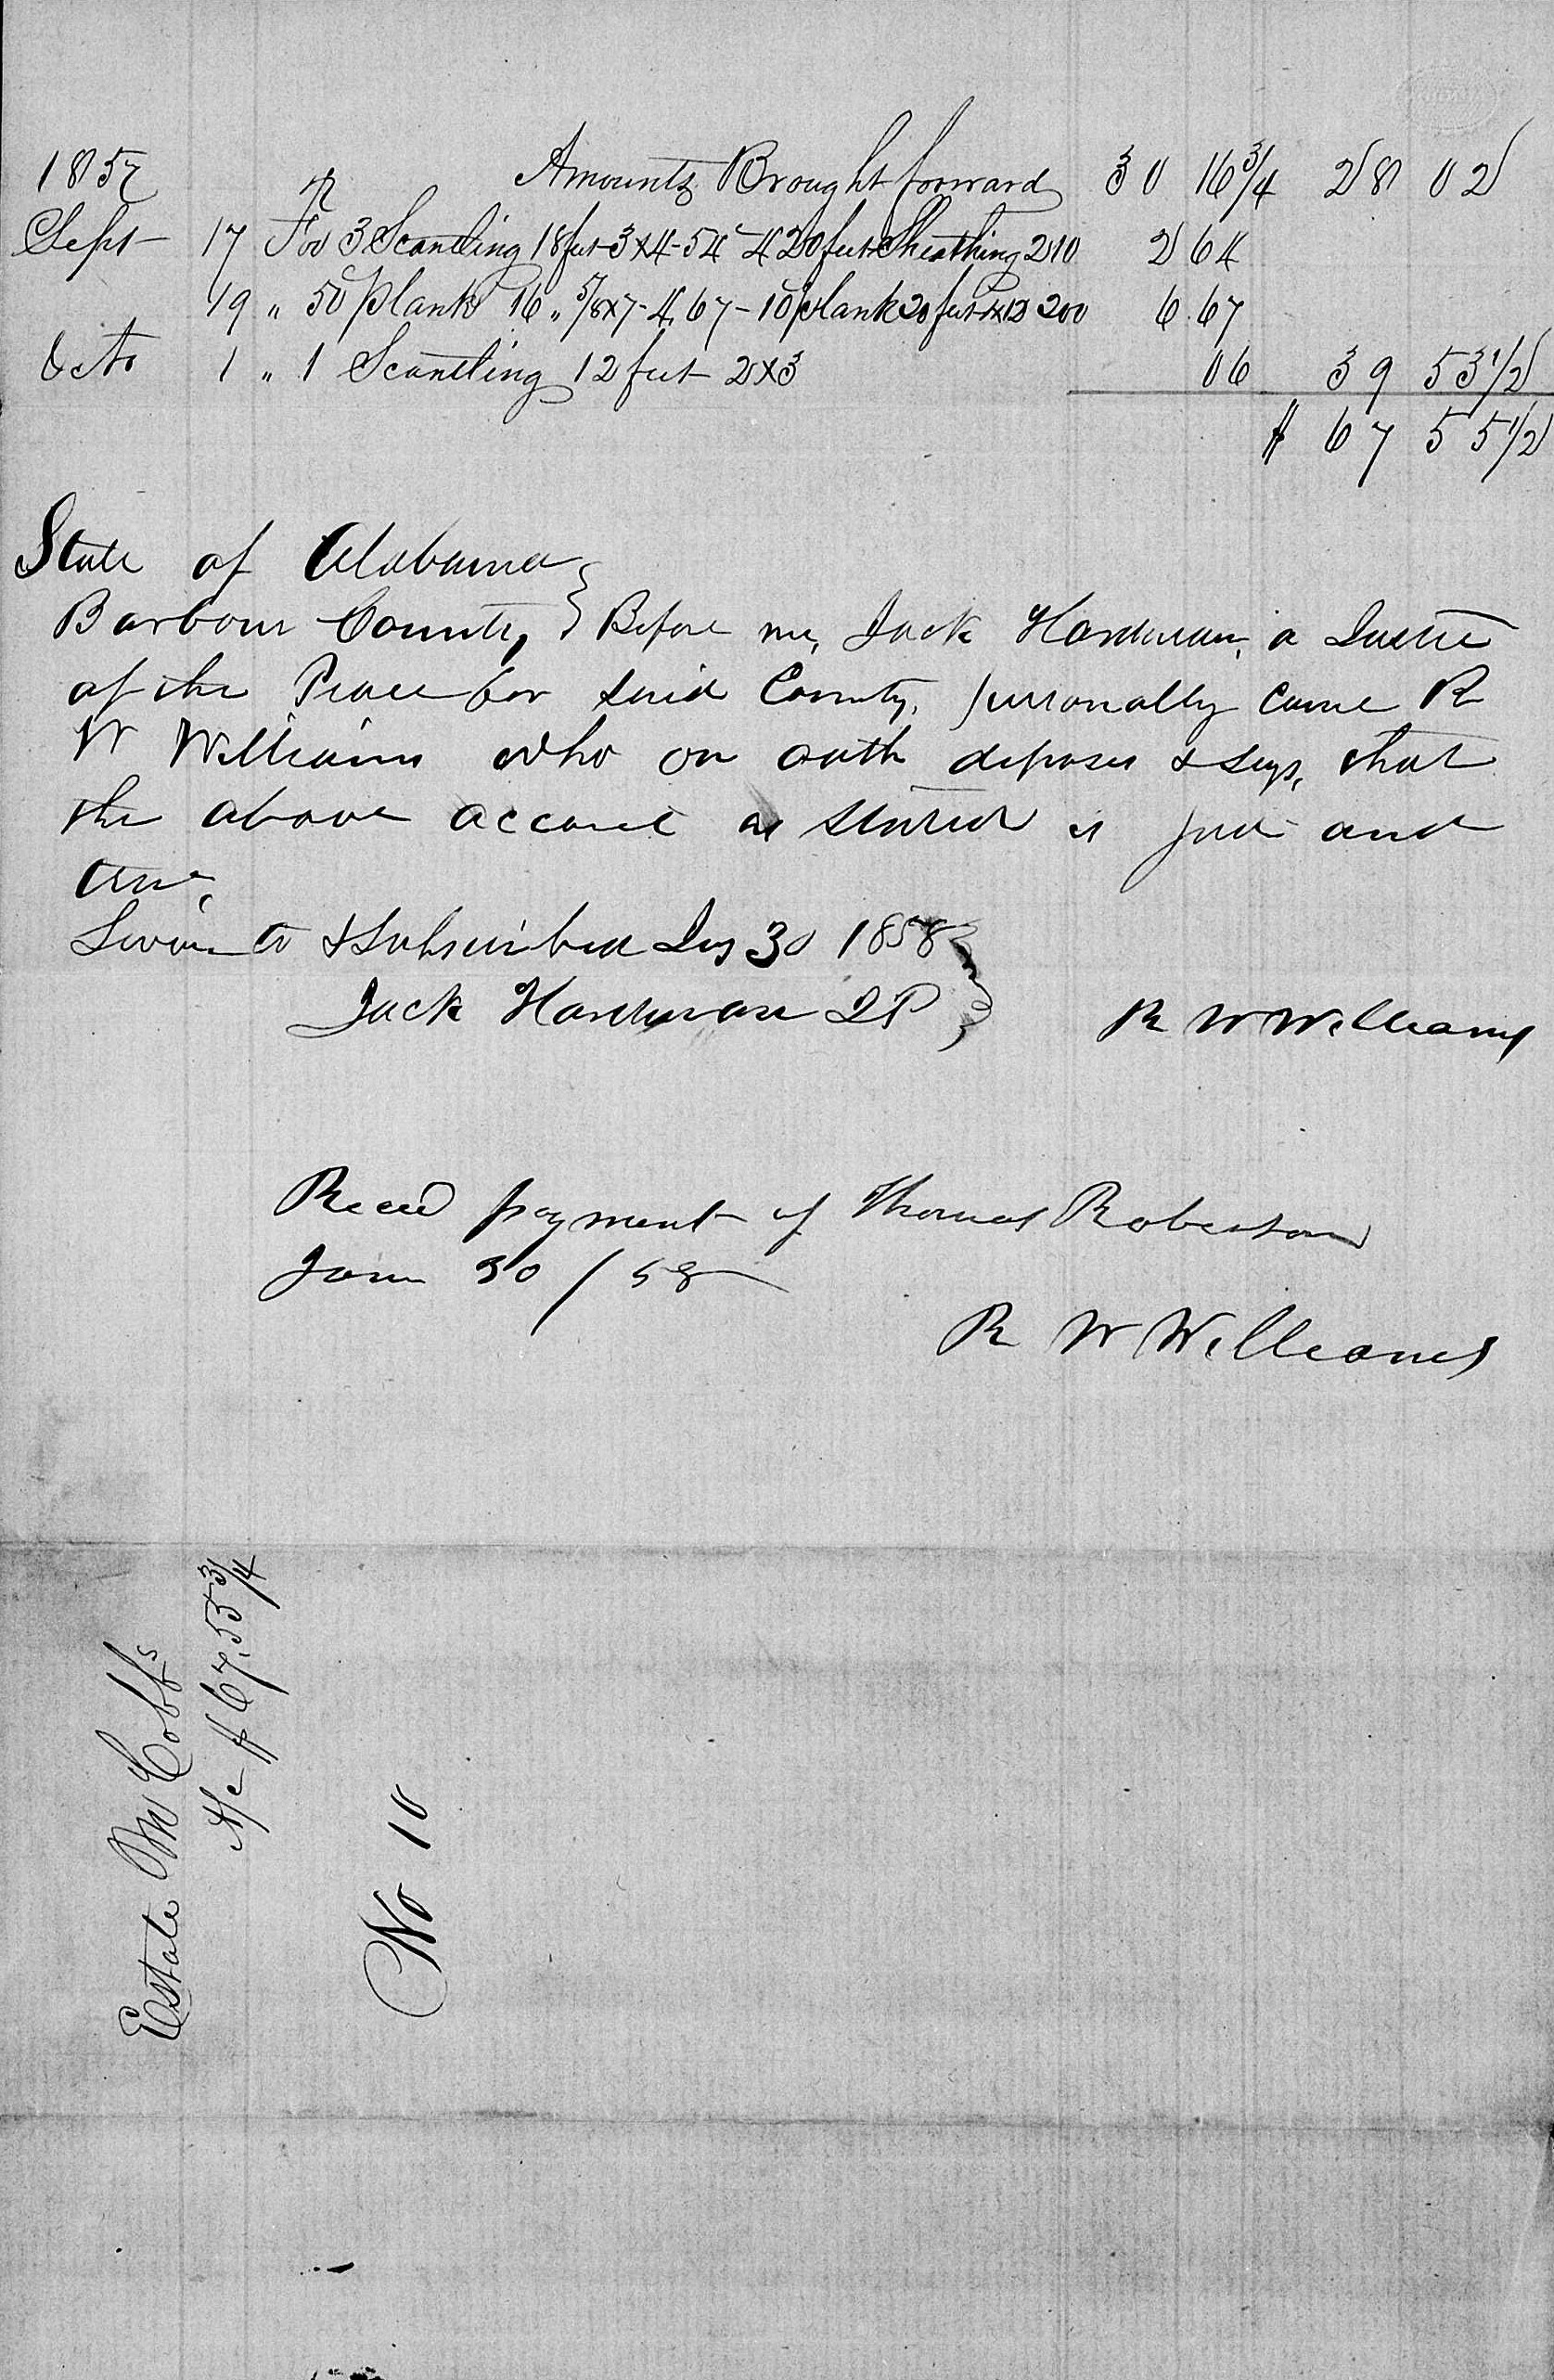 1857 Amounts Brought forward 30 16 3/4 28 02
Sept 17 For 3 Scantling 18 feet 3x4-54 420 feet Sheathing 210 2 64
19 " 50 plank 16 " 5/8x7-4,67-10 plank 20 feet 1x12 200 6.67
Octo 1 " 1 Scantling 12 feet 2x3 06 39 53 1/2
$ 67 55 1/2
State of Alabama }
Barbour County, } Before me, Jack Hardman, a Justice
of the Peace for said County, personally came R
W Williams who on oath deposes & says, that
the above account as stated is just and
true,
Sworn to & Subscribed 30 1858 }
Jack Hardman JP } R W Williams
Recd payment of Thomas Roberson
Jan 30 / 58
R W Williams
Estate M Cobbs
A/c $ 67.55 3/4
No 10